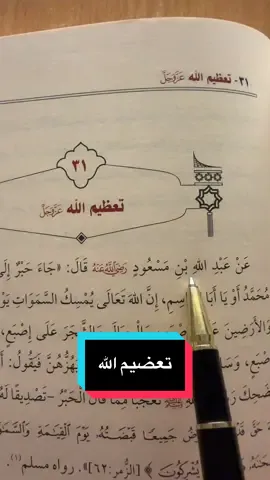 ٣١- تعظيم الله عَزَّوَجَلَّ
٣١
تعظيم الله عَزَّوَجَلَّ
عَنْ عَبْدِ اللهِ بْنِ مَسْعُودٍ رَضِيَاللَّهُعَنْهُ قَالَ: «جَاءَ حَبْرٌ إِلَى
مُحَمَّدُ أَوْ يَا أَبَا الْقَاسِمِ، إِنَّ اللهَ تَعَالَى يُمْسِكُ السَّمَوَاتِ يَوْ
وَالْأَرَضِينَ عَلَى إِصْبَعٍ،
تعضيم الله
يَهُزُّهُنَّ فَيَقُولُ:
تَعَجُّبًا مِمَّا قَالَ الْحَبْرُ -تَصْدِيقًا لَهُ
جَمِيعًا قَبْضَتُهُ يَوْمَ الْقِيَامَةِ وَالسَّمَوَ
يُشْرِكُونَ ﴾ [الزُّمر: ٦٢]». رواه مسلم (١).